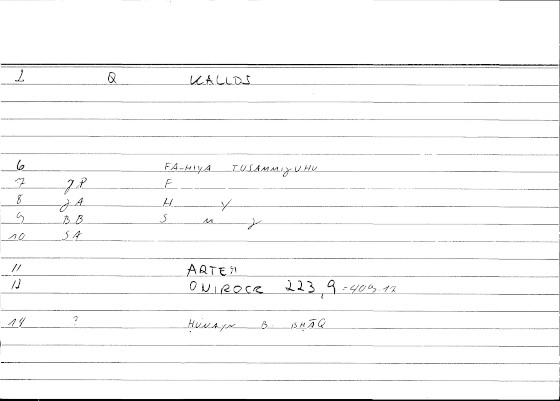 1 Q KALLOS
6 FA-HIYA TUSAMMIYUHU
7 gP F
8 gA H Y
9 BB S m y
10 SA
11 ARTEM
13 ONIROCR 223,9=409.12
14 ? ḤUNAYN B. ISḤĀQ